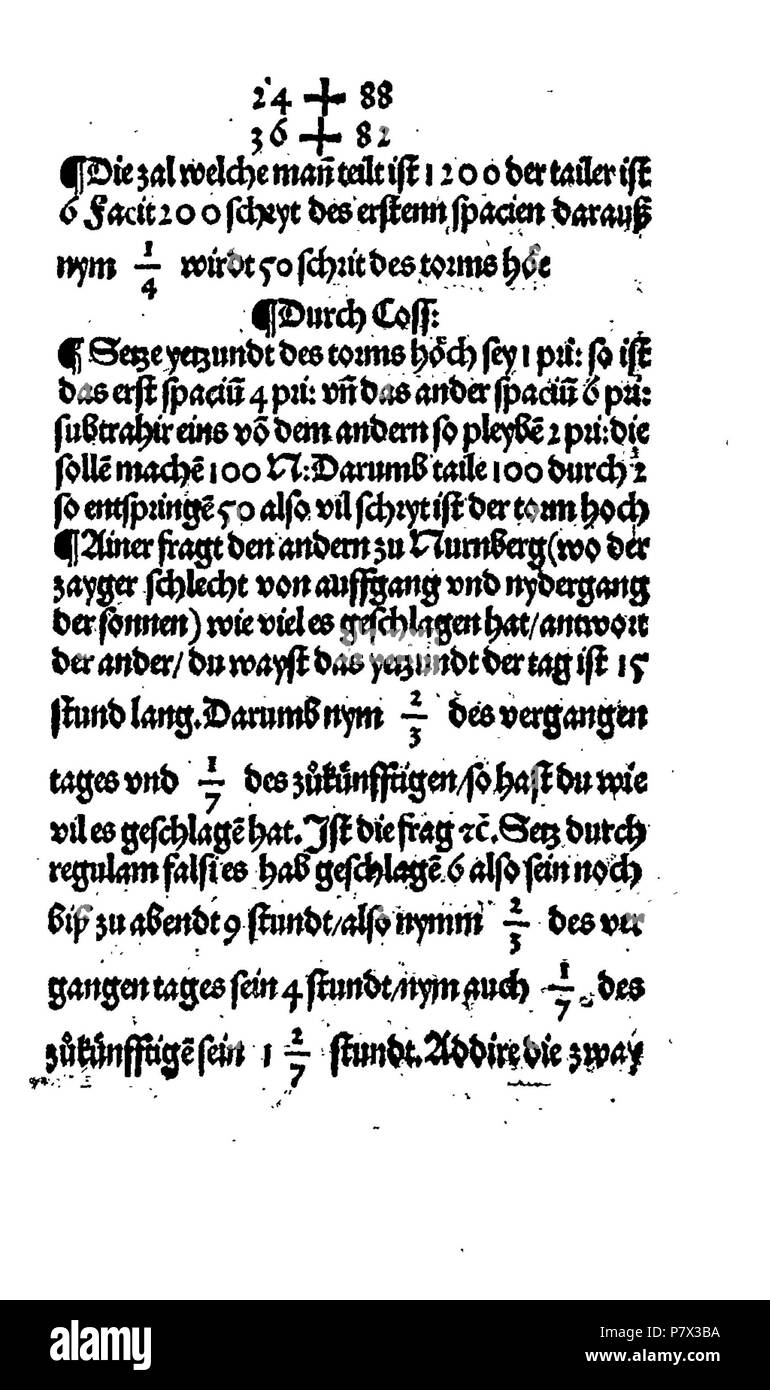 24 + 88
36 + 82
¶Die zal welche mañ teilt ist 1200 der tailer ist
6 Facit 200 schryt des erstenn spacien darauß
nym 1/4 wirdt 50 schrit des torms hoͤe
¶Durch Coss:
¶ Setze yetzundt des torms hoͤch sey 1 pri: so ist
das erst spaciū 4 pri: vñ das ander spaciū 6 pri:
subtrahir eins võ dem andern so pleybē 2 pri: die
sollē machē 100 N: Darumb taile 100 durch 2
so entspringē 50 also vil schryt ist der torm hoch
¶Ainer fragt den andern zu Nurnberg (wo der
zayger schlecht von auffgang vnd nydergang
der sonnen) wie viel es geschlagen hat/ antwort
der ander/ du wayst das yetzundt der tag ist 15
stund lang. Darumb nym 2/3 des vergangen
tages vnd 1/7 des zůkünfftigen/ so hast du wie
vil es geschlagē hat. Ist die frag ꝛc̄. Setz durch
regulam falsi es hab geschlagē 6 also sein noch
biß zu abendt 9 stundt/ also nymm 2/3 des ver
gangen tages sein 4 stundt/ nym auch 1/7 des
zůkünfftigē sein 1 2/7 stundt. Addire die zway
alamy
alamy
Image ID: P7X3BA
www.alamy.com